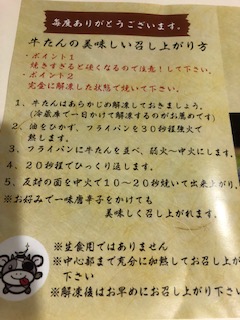 毎度ありがとうございます。
牛たんの美味しい召し上がり方
・ポイント1
焼きすぎると硬くなるので注意！して下さい。
・ポイント2
完全に解凍した状態で焼いて下さい。
1、牛たんはあらかじめ解凍しておきましょう。
(冷蔵庫で一日かけて解凍するのがお薦めです)
2、油をひかず、フライパンを30秒程強火で
熱します。
3、フライパンに牛たんを並べ、弱火〜中火にします。
4、20秒程でひっくり返します。
5、反対の面を中火で10〜20秒焼いて出来上がり。
※お好みで一味唐辛子をかけても
美味しく召し上がれます。
※生食用ではありません
※中心部まで充分に加熱してお召し上が
下さい
※解凍後はお早めにお召し上がり下さい